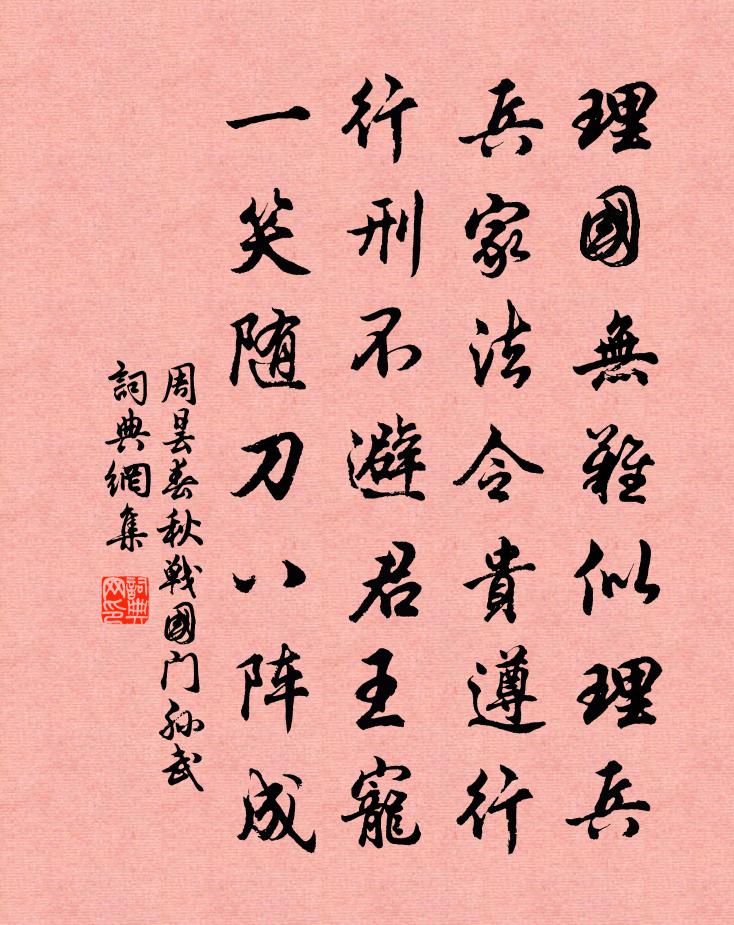 理國無難似理兵
兵家法令貴遵行
行刑不避君王寵
一笑随刀八阵成
周昙春秋戰國门孙武
詞典網集
詞典网印